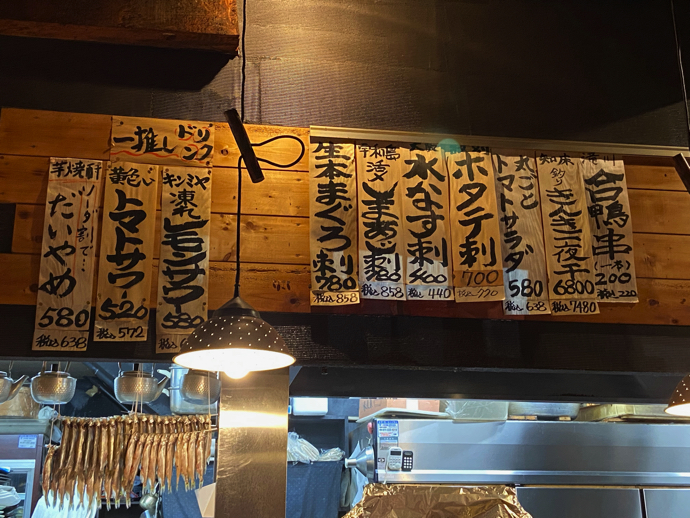 一推しドリンク
芋焼酎
ソーダ割で…
だいやめ
580
税込638
黄色い
トマトサワー
520
税込572
キンミヤ
凍れレモンサワー
税込
生本まぐろ刺
780
税込858
活〆
しまあじ刺
780
税込858
水なす刺
400
税込440
ホタテ刺
700
税込770
丸ごと
トマトサラダ
580
税込638
知床
釣りきんき一夜干
6800
税込7480
合鴨串
一本
200
税込220